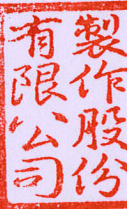 製作股份
有限公司